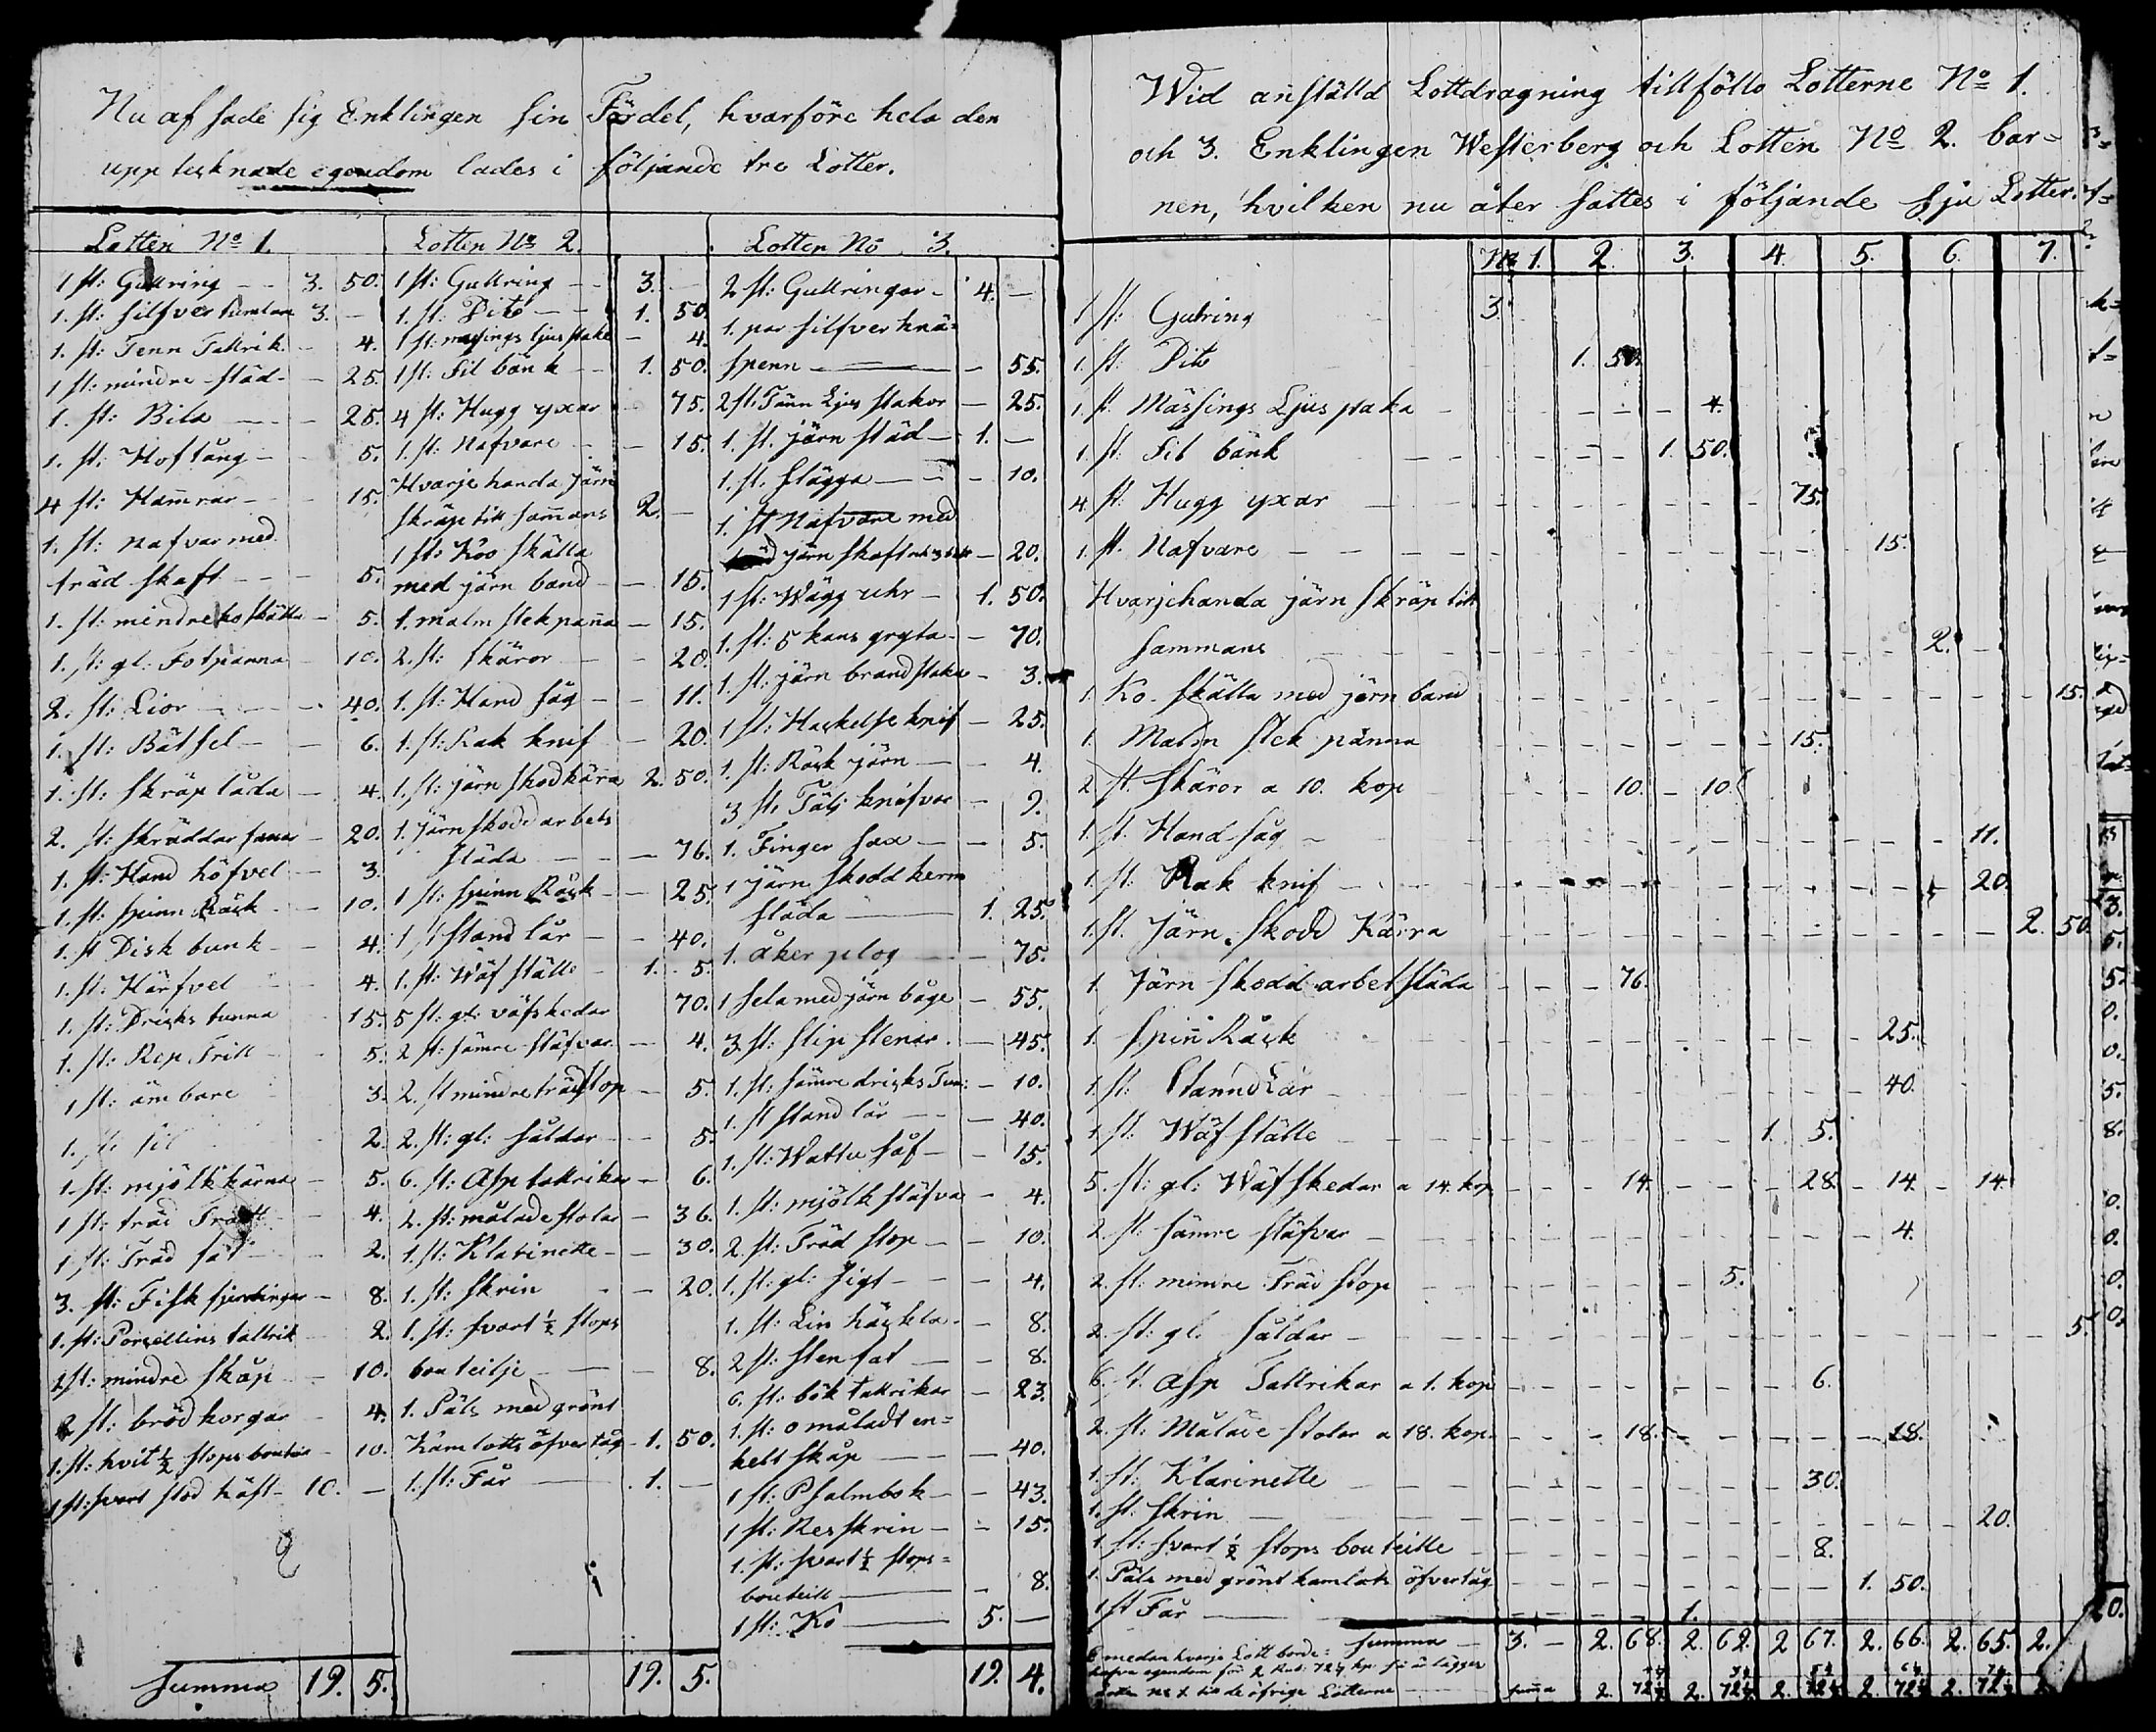 Nu af sade sig Enklingen sin Fördel, hvarföre hela den
upp tecknade egendom lades i följande tre Lotter.
Lotten No 1.
1 st: Gullring - - 3. 50.
1. st: Silfver tumlare 3. -
1. st: Tenn Tallrik. - 4.
1 st: mindre städ - - 25.
1. st: Bila - - - 25.
1. st: Hoftång - - 5.
4 st: Hamrar - - 15.
1. st: nafvar med
träd skaft - - - 5.
1. st: mindre ko skälla - 5.
1. st: gl: Fotpanna - 10.
2. st: Lior - - - 40.
1. st: Bätsel - - 6.
1. st: skräp låda - 4.
2. st: skräddar saxar - 20.
1. st: Hand höfvel - 3.
1. st: spinn Råck - - 10.
1. st Disk bunk - - 4.
1. st: Härfvel - - 4.
1. st: Dricks tunna 15.
1. st: Rep Trill - - 5.
1 st: ämbare - 3.
1. st: sil - 2.
1. st: mjölk kärna - 5.
1 st: träd Tratt - 4.
1 st: Träd fat - - 2.
3. st: Fisk fjerdingar - 8.
1. st: Porcellins tallrik 2.
1 st: mindre skåp - 10.
2 st: bröd korgar 4.
1. st: hvit ½ stops bouteille - 10.
1 st: svart stod häst - 10. -
Summa 19. 5.
Lotten No 2.
1 st: Gullring - - 3. -
1. st: Dito - - 1. 50.
1 st: mässings ljus stake - 4.
1 st: Fil bänk - - 1. 50.
4 st: Hugg yxar - 75.
1. st: Nafvare - - 15.
Hvarje handa järn
skräp till sammans 2. -
1 st: Koo skälla
med järn band - - 15.
1. malm stek panna - 15.
2. st: skäror - - 20.
1. st: Hand såg - - 11.
1. st: Rak knif - 20.
1. st: järn skodd kärra 2. 50.
1. järn skodd arbets
släda - - - 76.
1 st: spinn Råck - - 25.
1 st stand lår - - 40.
1. st: Wäf ställe - 1. 5.
5 st: gl: väfskedar 70.
2 st: sämre stäfvar - 4.
2. st mindre träd stop - 5.
2. st: gl: såldar - - 5.
6. st: Asp tallrikar - 6.
2. st: målade stolar - 36.
1. st: Klarinette - - 30.
1. st: skrin - - 20.
1. st: svart ½ stops
bouteilje - - 8.
1. Päls med grönt
Kamlotts öfvertåg - 1. 50.
1. st: Får - 1. -
19. 5.
Lotten No 3.
2 st: Gullringar - 4. -
1. par silfver knä-
spenn - - 55.
2 st: Tenn Ljus stakar - 25.
1. st. järn städ - 1. -
1. st. slägga - - - 10.
1. st Nafvare med
järn skaft - 20.
1 st: Wägg uhr - 1. 50.
1. st: 5 kans gryta - - 70.
1. st: järn brand staka - 3.
1 st: Hackelse knif - 25.
1. st: Råck järn - - 4.
3 st: Tälj knifvar - 9.
1. Finger sax - - 5.
1 järn skodd
släda - 1. 25.
1. åker plog - - 75.
1 sela med järn båge - 55.
3 st: slip stenar. - 45.
1. st: sämre dricks Tun: - 10.
1. st stand lår - - 40.
1. st: Wattu så - - 15.
1. st: mjölk stäfva - 4.
2. st: Träd stop - - 10.
1. st: gl: sigt - - - 4.
1. st: Lin häckla - - 8.
2 st: sten fat - - 8.
6. st: bök tallrikar - 23.
1. st: o måladt en-
kelt skåp - - 40.
1 st: Psalmbok - - 43.
1 st: Res skrin - - 15.
1. st: svart ½ stops-
bouteill - - 8.
1 st: Ko - 5. -
19. 4.
Wid anställd Lottdragning tillföllo Lotterne No 1.
och 3. Enklingen Westerberg och Lotten No 2. bar-
nen, hvilken nu åter sattes i följande sju Lotter.
No 1. 2. 3. 4. 5. 6. 7.
1 st: Gulring 3.
1. st: Dito 1. 50.
1. st. Mässings Ljus staka - 4.
1. st: Fil bänk 1. 50.
4. st. Hugg yxar 75.
1. st. Nafvare 15.
Hvarjehanda järn skräp till
sammans 2. -
1. Ko. skälla med järn band 15.
1. Malm stek panna 15.
2 st. skäror a 10. kop 10. - 10.
1. st. Hand såg - 11.
1. st. Rak knif - 20.
1. st. Järn skodd Kärra 2. 50.
1. Järn skodd arbetsläda 76.
1. spinn Råck 25.
1. st: Stannd Lår 40.
1. st: Wäf ställe 1. 5.
5. st: gl: Wäfskedar a 14. kop 14. 28. 14. 14.
2. st: sämre stäfvar 4.
2. st: mindre Träd stop 5.
2. st: gl. såldar 5.
6. st. Asp Tallrikar a 1. kop 6.
2. st: Målade stolar a 18. kop. 18. 18.
1. st: Klarinette 30.
1. st: skrin 20.
1 st: svart ½ stops bouteille 8.
1. Päls med grönt kamlots öfvertåg 1. 50.
1 st Får 1.
Summa 3. - 2. 68. 2. 69. 2 67. 2. 66. 2. 65. 2.
Emedan hvarje Lott borde
egendom för 2 Rd: 72 kp så
No 1 till de öfrige Lotterne summa 2. 72 2. 72 2. 72 2. 72 2. 72 2.